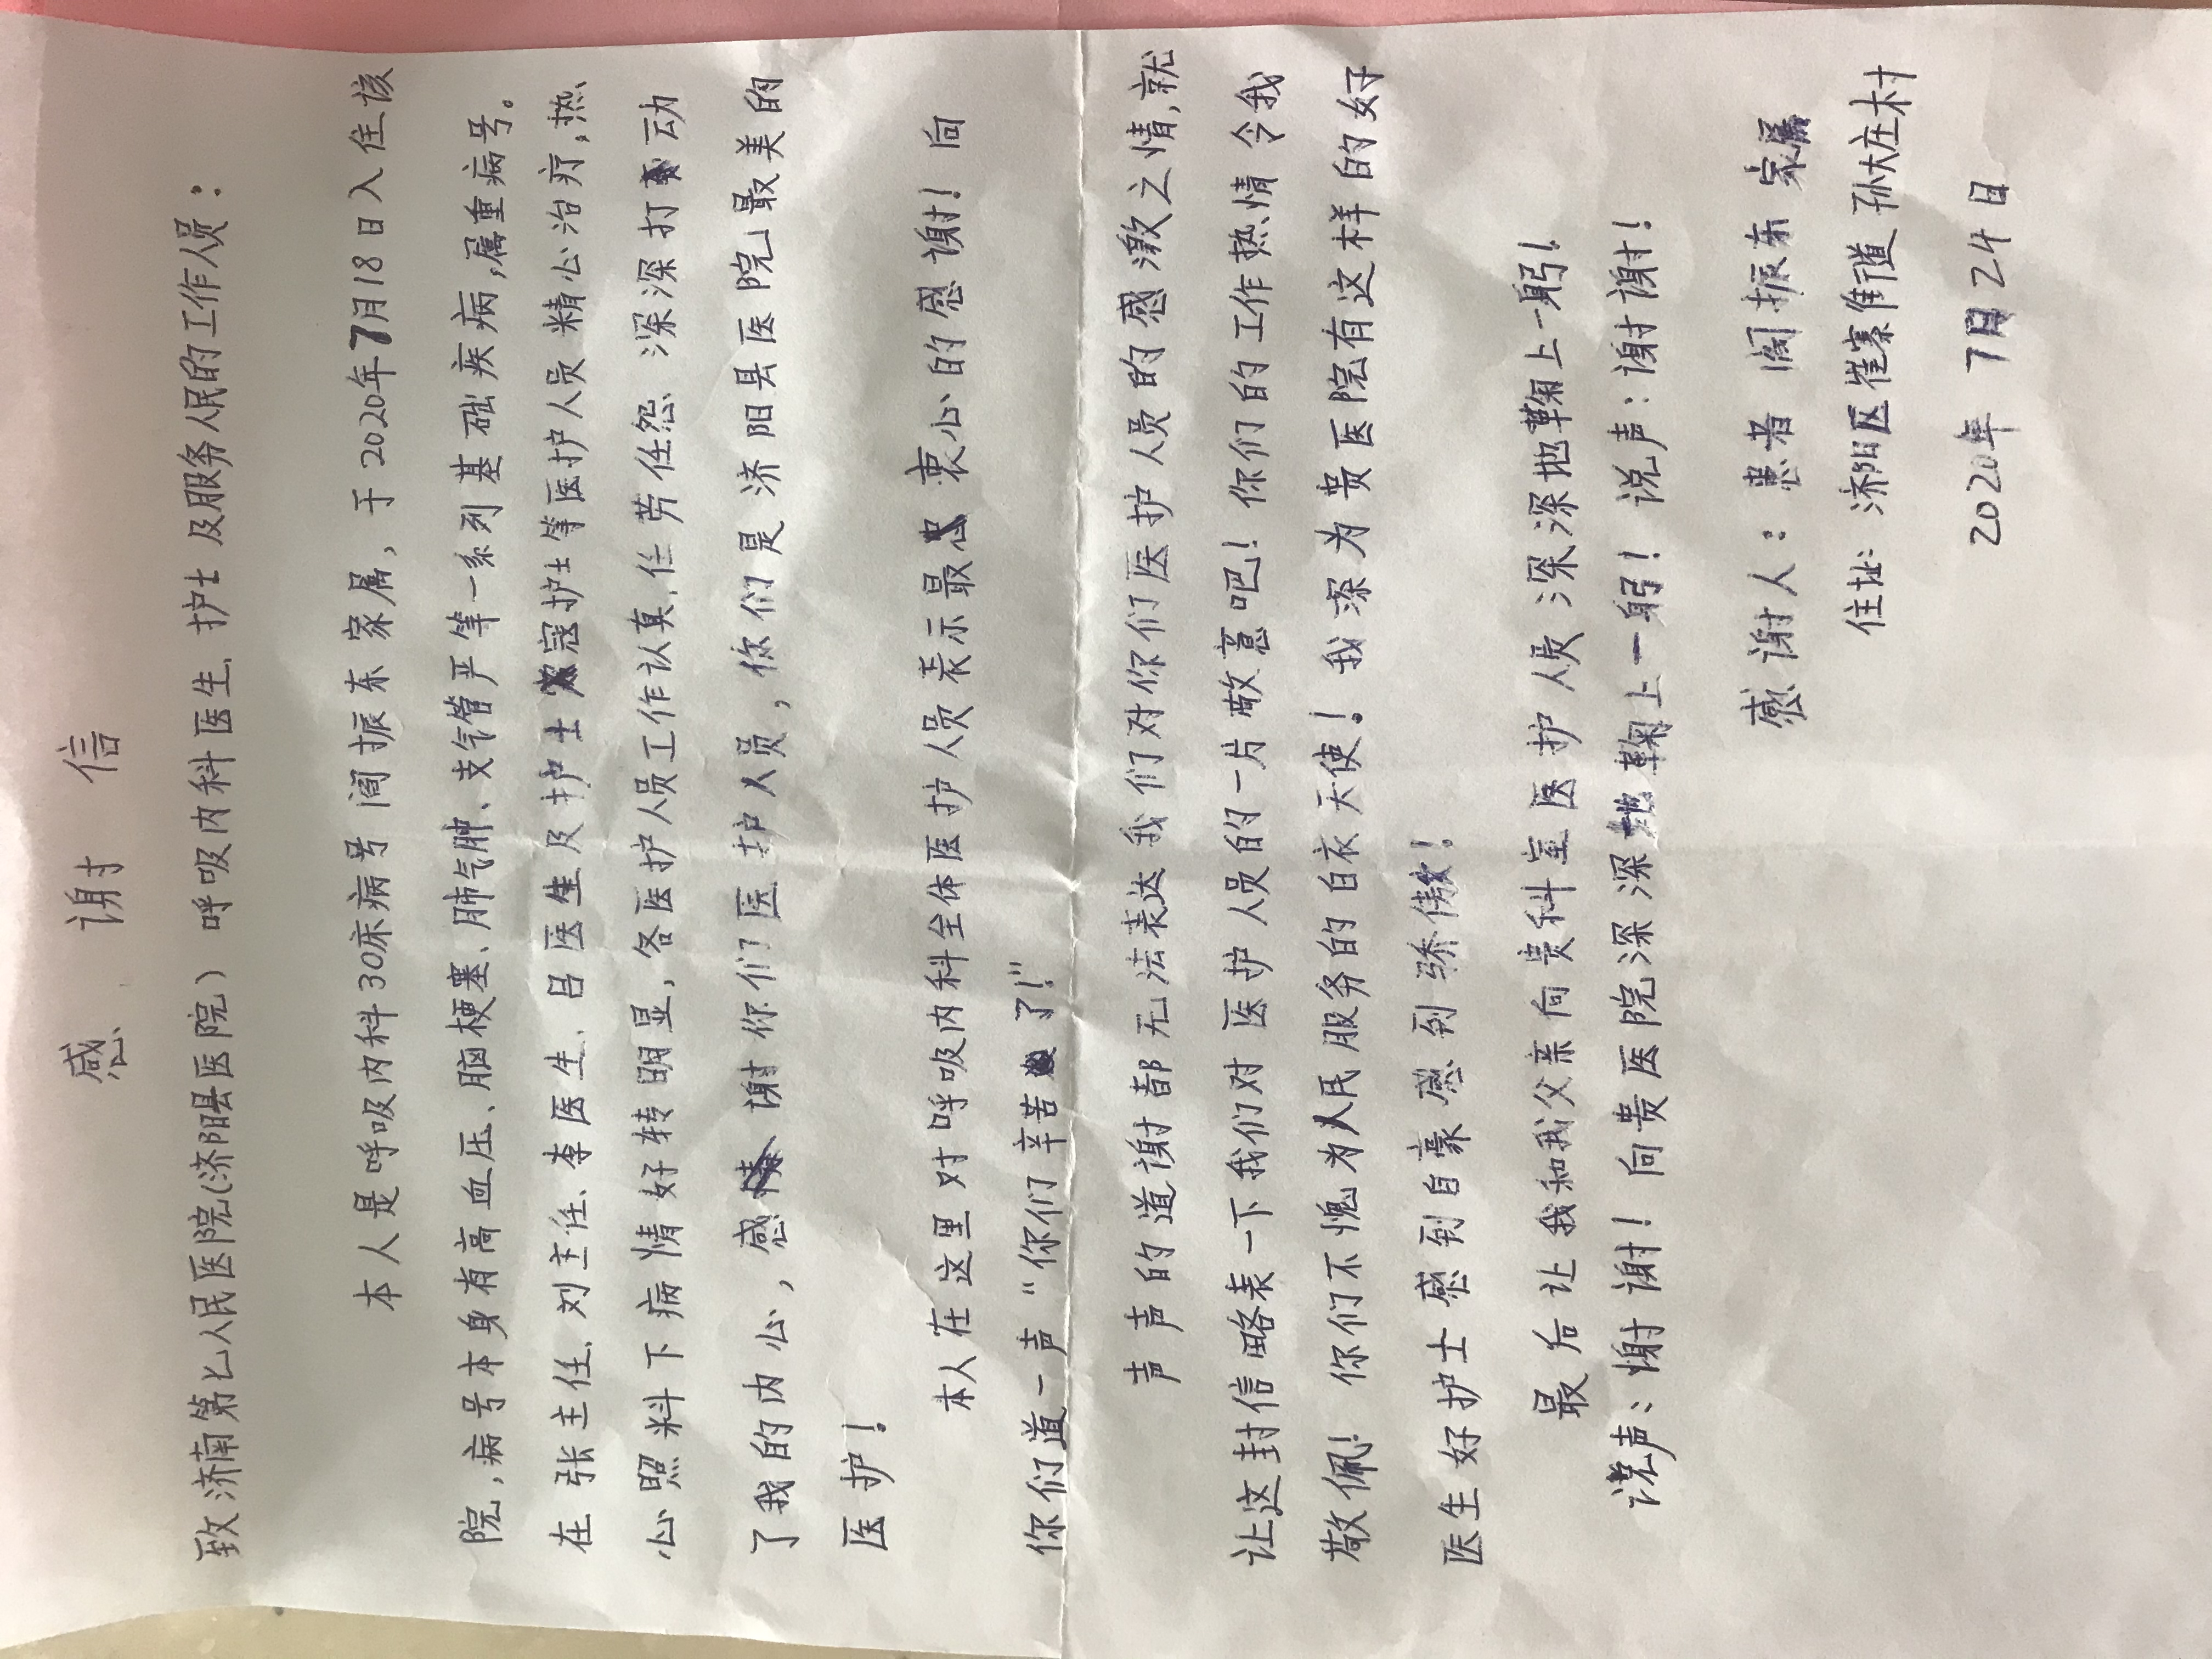 感谢信
致济南第七人民医院(济阳县医院)呼吸内科医生、护士及服务人民的工作人员：
本人是呼吸内科30床病号阎振东家属，于2020年7月18日入住该
院，病号本身有高血压、脑梗塞、肺气肿、支气管严等一系列基础疾病，属重病号。
在张主任、刘主任、李医生、吕医生及护士寇护士等医护人员精心治疗，热
心照料下病情好转明显，各医护人员工作认真、任劳任怨、深深打动
了我的内心，感谢你们医护人员，你们是济阳县医院最美的
医护！
本人在这里对呼吸内科全体医护人员表示最衷心的感谢！向
你们道一声“你们辛苦了！”
声声的道谢都无法表达我们对你们医护人员的感激之情，就
让这封信略表一下我们对医护人员的一片敬意吧！你们的工作热情令我
敬佩！你们不愧为人民服务的白衣天使！我深为贵医院有这样的好
医生好护士感到自豪感到骄傲！
最后让我和我父亲向贵科室医护人员深深地鞠上一躬！
说声：谢谢！向贵医院深深地鞠上一躬！说声：谢谢！
感谢人：患者阎振东家属
住址：济阳区崔寨街道孙大庄村
2020年7月24日